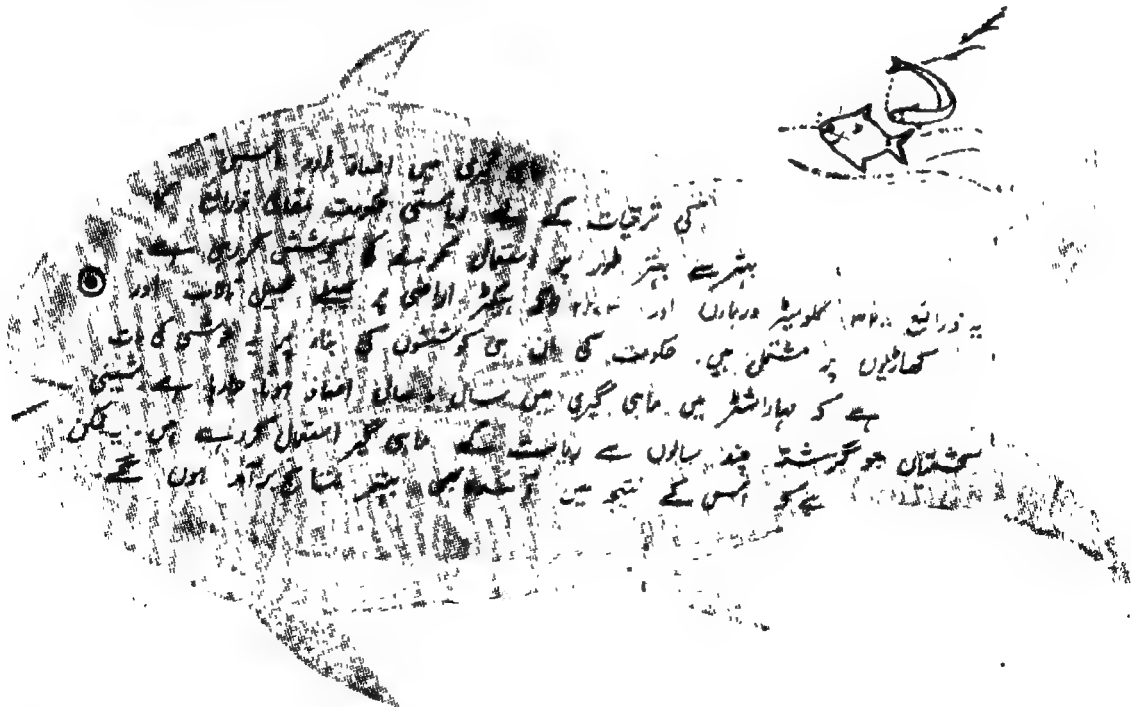 ماہی گیری میں اضافہ اور اس
کی ترقیات کے لئے ریاستی حکومت ذرائع کا
بہتر سے بہتر طور پر استعمال کرنے کی کوشش کر رہی ہے
یہ ذرائع ۳۲۰۰ کلومیٹر دریاؤں اور لاکھ ہیکٹر اراضی پر پھیلے جھیل تالاب اور
کھاڑیوں پر مشتمل ہیں۔ حکومت کی ان ہی کوششوں کی بناء پر یہ خوشی کی بات
ہے کہ مہاراشٹر میں ماہی گیری میں سال بہ سال اضافہ ہوتا جارہا ہے مشینی
کشتیاں جو گزشتہ چند سالوں سے ریاست کے ماہی گیر استعمال کر رہے ہیں۔ یہ ممکن
ہے کہ اس کے نتیجہ میں آئندہ بھی بہتر نتائج برآمد ہوں گے۔